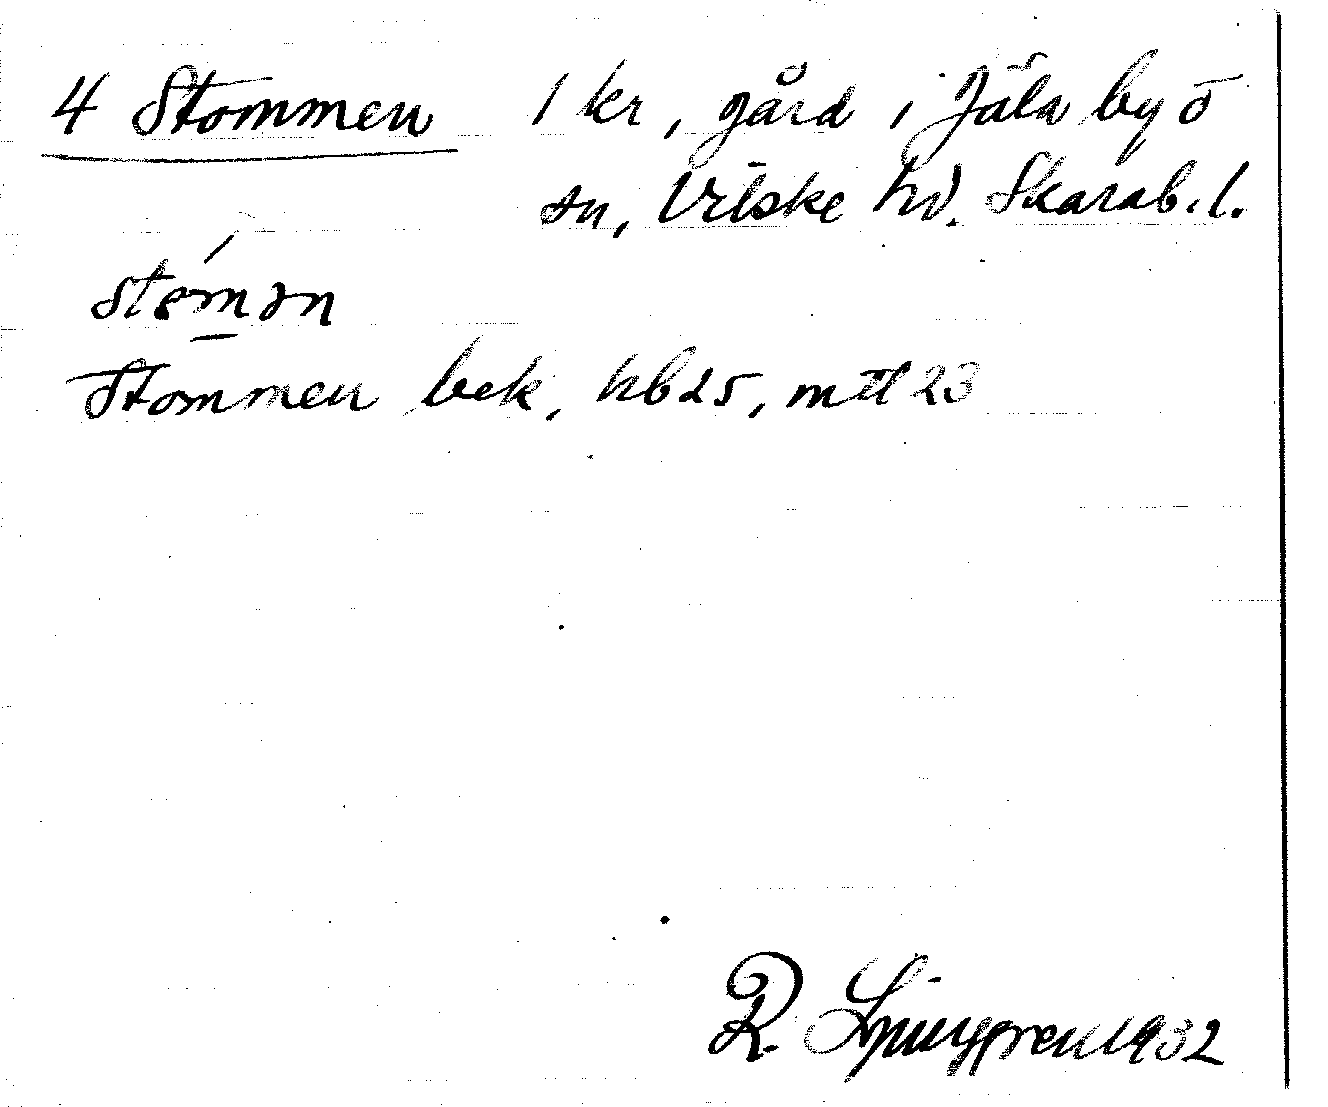 4 Stommen 1 kr, gård i Jäla by o
sn, Vilske hd. Skarab. l.
stømən
Stommen bek, hb 25, mtl 23
R. Ljunggren 1932